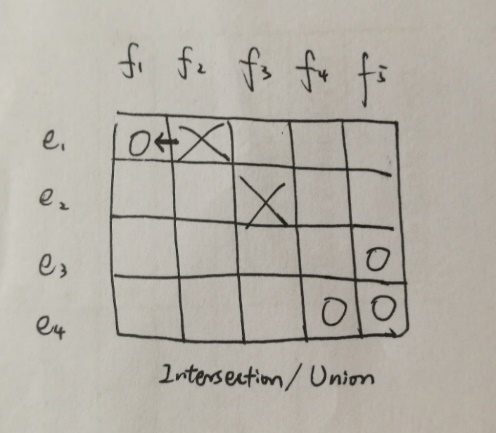 f₁ f₂ f₃ f₄ f₅
e₁ O ← X
e₂ X
e₃ O
e₄ O O
Intersection / Union